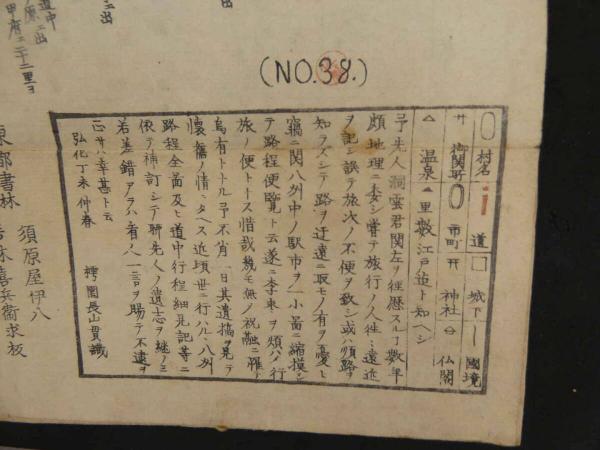 (NO.38.)
村名 道 城下 國境
御関所 市町 神社 仏閣
温泉 里数江戸迠ト知ヘシ
予先人洞雲君関左ヲ徃歴スル丁数年
頗地理ニ委シ嘗テ旅行ノ人徃〻遠近
ヲ記シ誤テ旅次ノ不便ヲ致シ或ハ順路ヲ
知ラズシテ路ヲ迂遠ニ取モノ有ヲ憂ヒ
竊ニ関八州中ノ駅市ヲ一小畐ニ縮摸シ
テ路程便覧ト云遂ニ李来ヲ頒ハ行
旅ノ便トース惜哉幾モ無ノ祝融ニ罹リ
烏有トナル予不肖一日其遺搞ヲ見テ
懐舊ノ情ニタヘス近頃世ニ行ハル八州
路程全畐及ヒ道中行程細見記等ニ
依テ補訂シテ聊先人ノ遺志ヲ継ノミ
若差錯アラハ看ノ八一言ヲ賜テ不逮ヲ
正サハ幸甚ト云
弘化丁未仲春
長山貫識
東都書林 須原屋伊八
喜兵衛求板
道中
ニ出
原ニ出
甲府ニ二十二里ヨ
ニ出